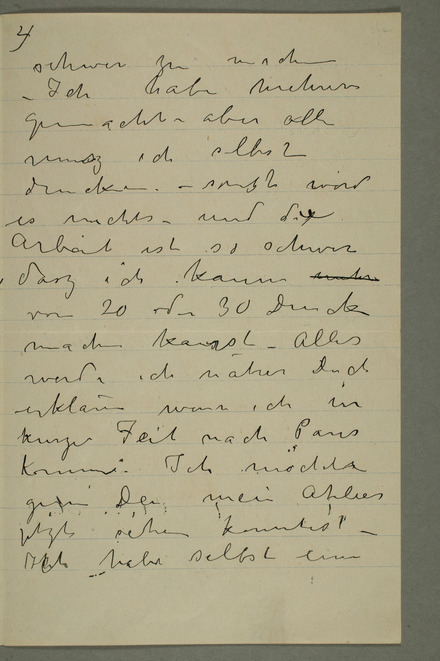 4
schwer zu machen
– Ich habe mehrere
gemacht – aber alle
musz ich selbst
drucken. – sonst wird
es nichts – und die
Arbeit ist so schwer
dasz ich kaum
von 20 oder 30 Druck
machen kanst – Alles
werde ich näher Dich
erklären wenn ich in
kurzer Zeit nach Paris
komme. Ich möchte
gern Du mein Atelier
jetzt sehen konntest –
Ich habe selbst einen